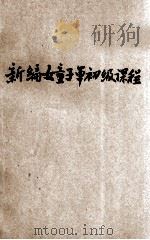 新编女童子军初级课程